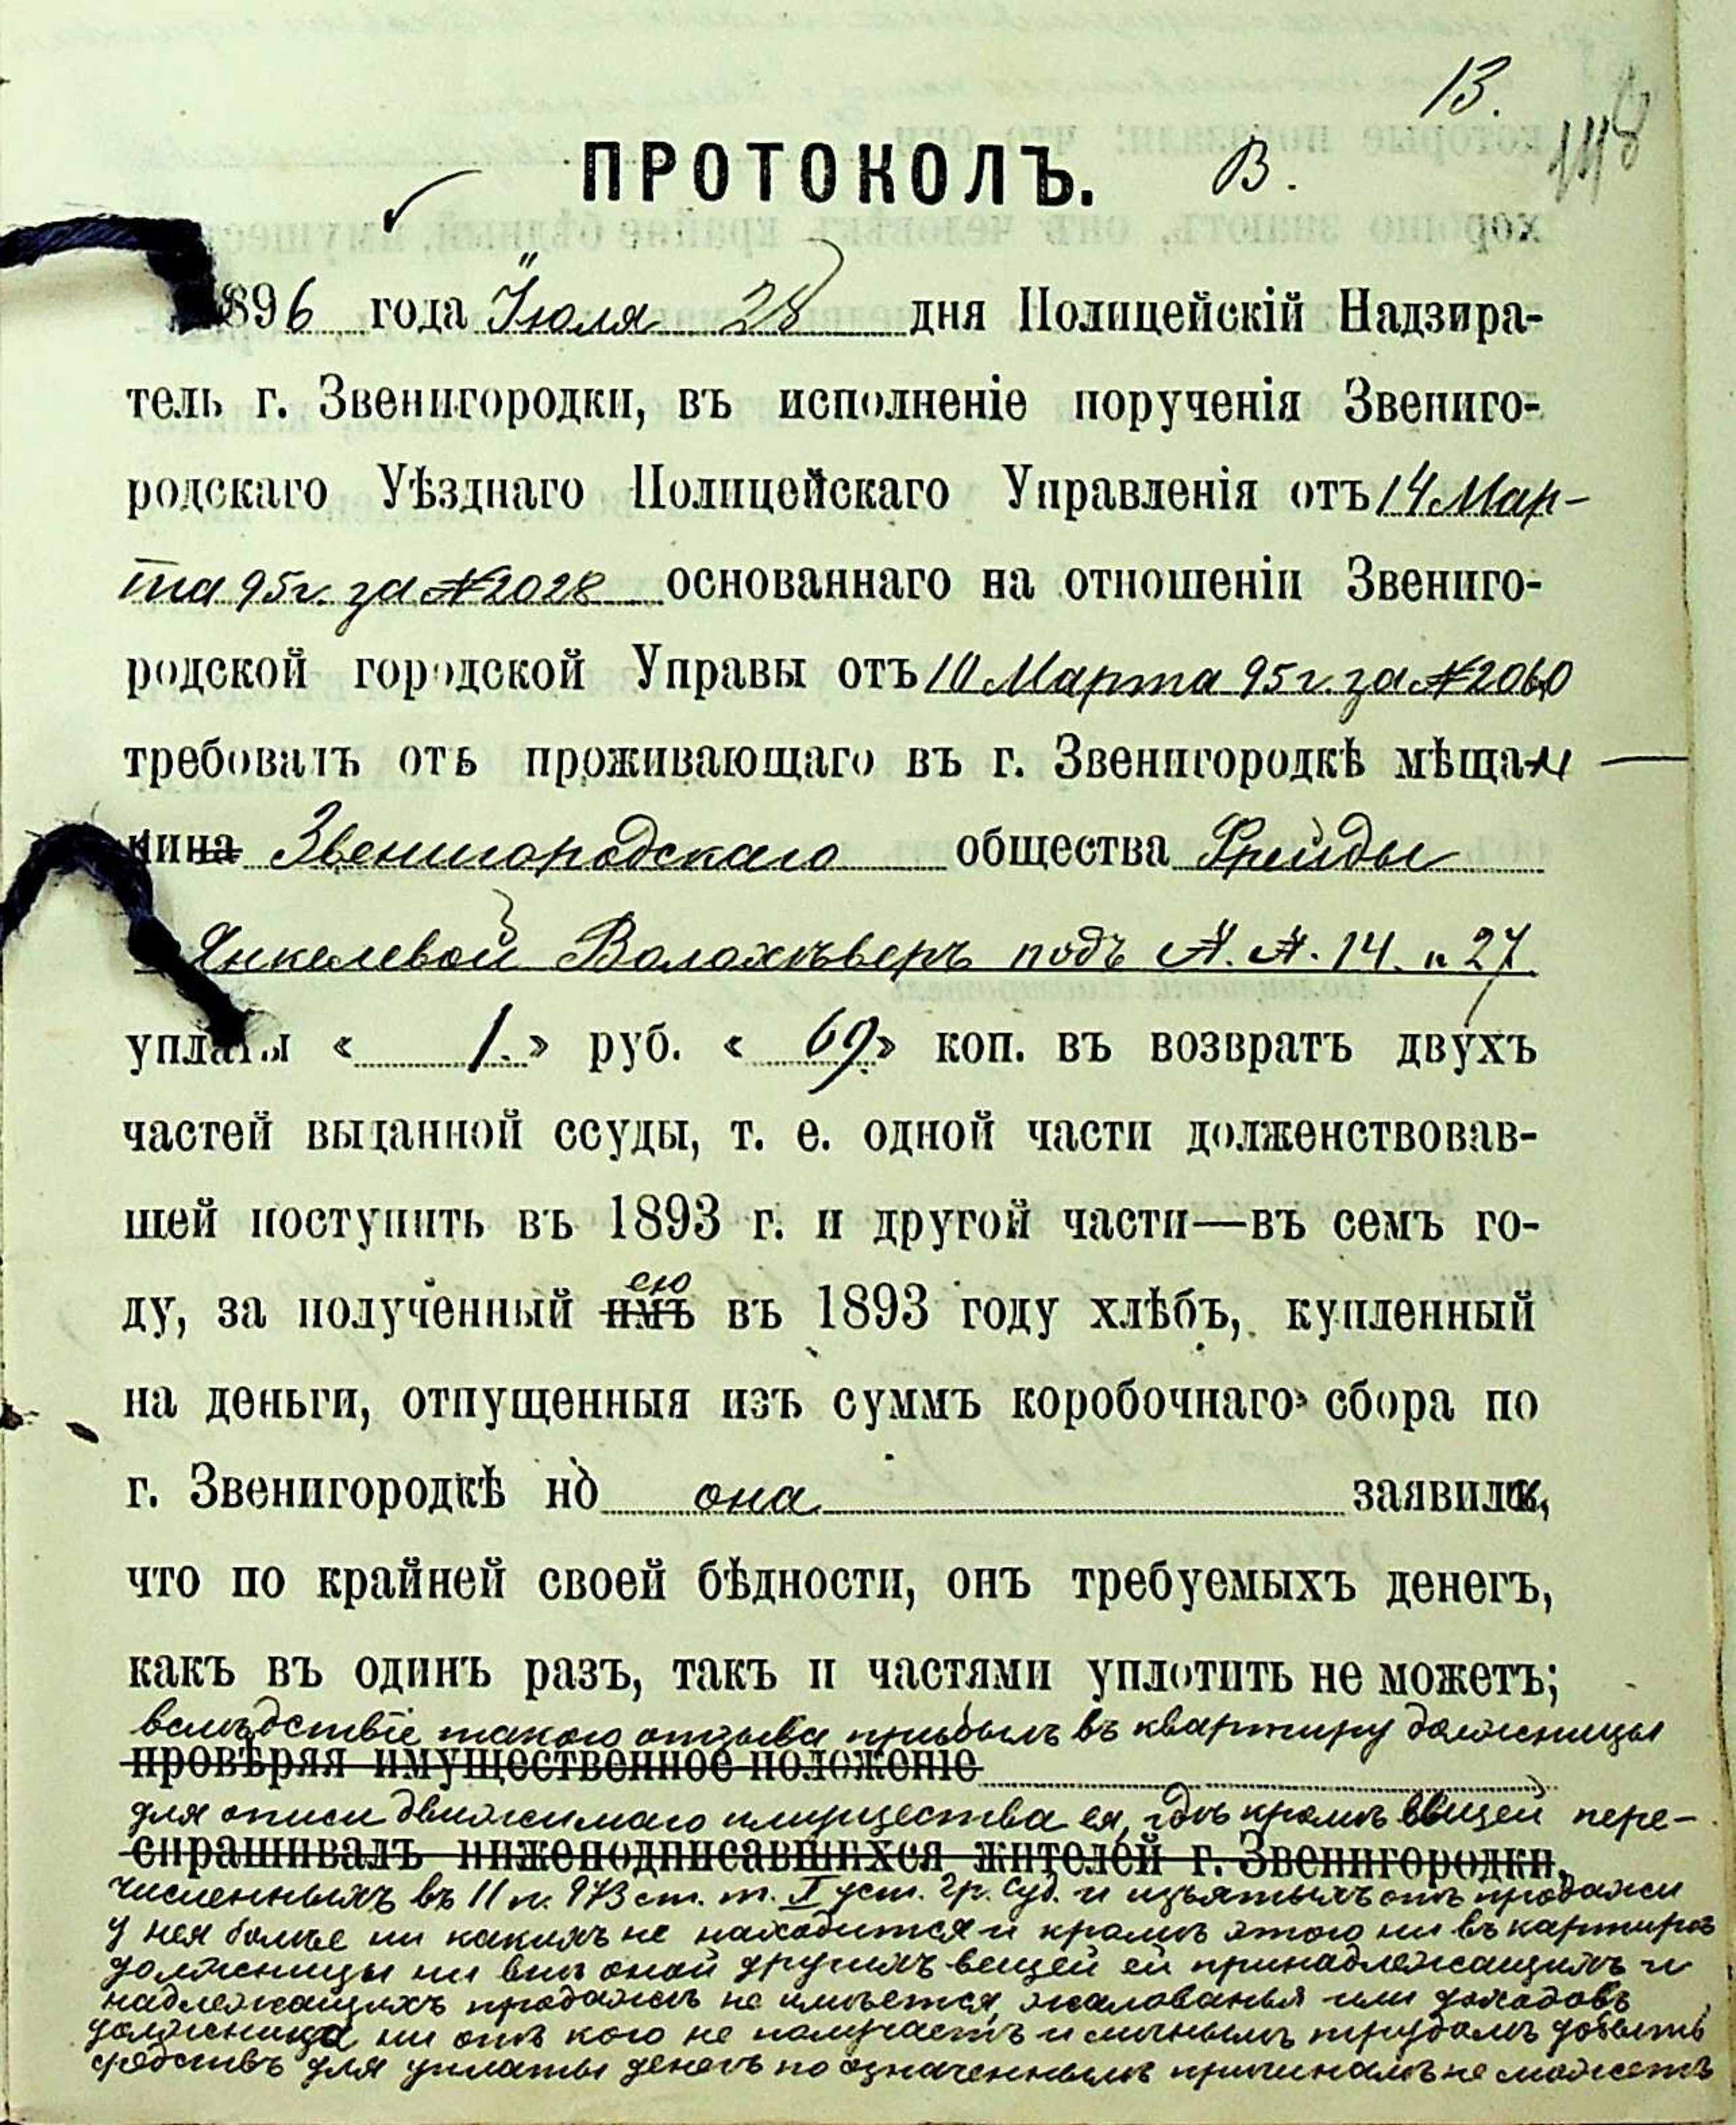 13.
148
ПРОТОКОЛЪ. В.
896 года Іюля 28 дня Полицейскій Надзира-
тель г. Звенигородки, въ исполненіе порученія Звениго-
родскаго Уѣзднаго Полицейскаго Управленія отъ 14 Мар-
та 95 г. за № 2028 основаннаго на отношеніи Звениго-
родской городской Управы отъ 10 Марта 95 г. за № 2060
требовалъ отъ проживающаго въ г. Звенигородкѣ мѣщан
кина Звенигородскаго общества Фрейды
Янкелевой Волохъверъ подъ №. №. 14. и 27
уплаты « 1. » руб. « 69 » коп. въ возвратъ двухъ
частей выданной ссуды, т. е. одной части долженствовав-
шей поступить въ 1893 г. и другой части—въ семъ го-
ду, за полученный имъ ею въ 1893 году хлѣбъ, купленный
на деньги, отпущенныя изъ суммъ коробочнаго сбора по
г. Звенигородкѣ но она заявила,
что по крайней своей бѣдности, онъ требуемыхъ денегъ,
какъ въ одинъ разъ, такъ и частями уплотить не можетъ;
вслѣдствіе такого отзыва прибылъ въ квартиру должницы
провѣряя имущественное положеніе
для описи движимаго имущества ея, гдѣ кромѣ вещей пере-
спрашивалъ нижеподписавшихся жителей г. Звенигородки,
численныхъ въ 11 п. 973 ст. т. X уст. гр. суд. и изъятыхъ отъ продажи
у нея болѣе ни какихъ не находится и кромѣ этого ни въ картирѣ
должницы ни внѣ оной другихъ вещей ей принадлежащихъ и
надлежащихъ продажѣ не имѣется, жалованья или доходовъ
должница ни отъ кого не получаетъ и личнымъ трудомъ добыть
средствъ для уплаты денегъ по означеннымъ причинамъ не можетъ